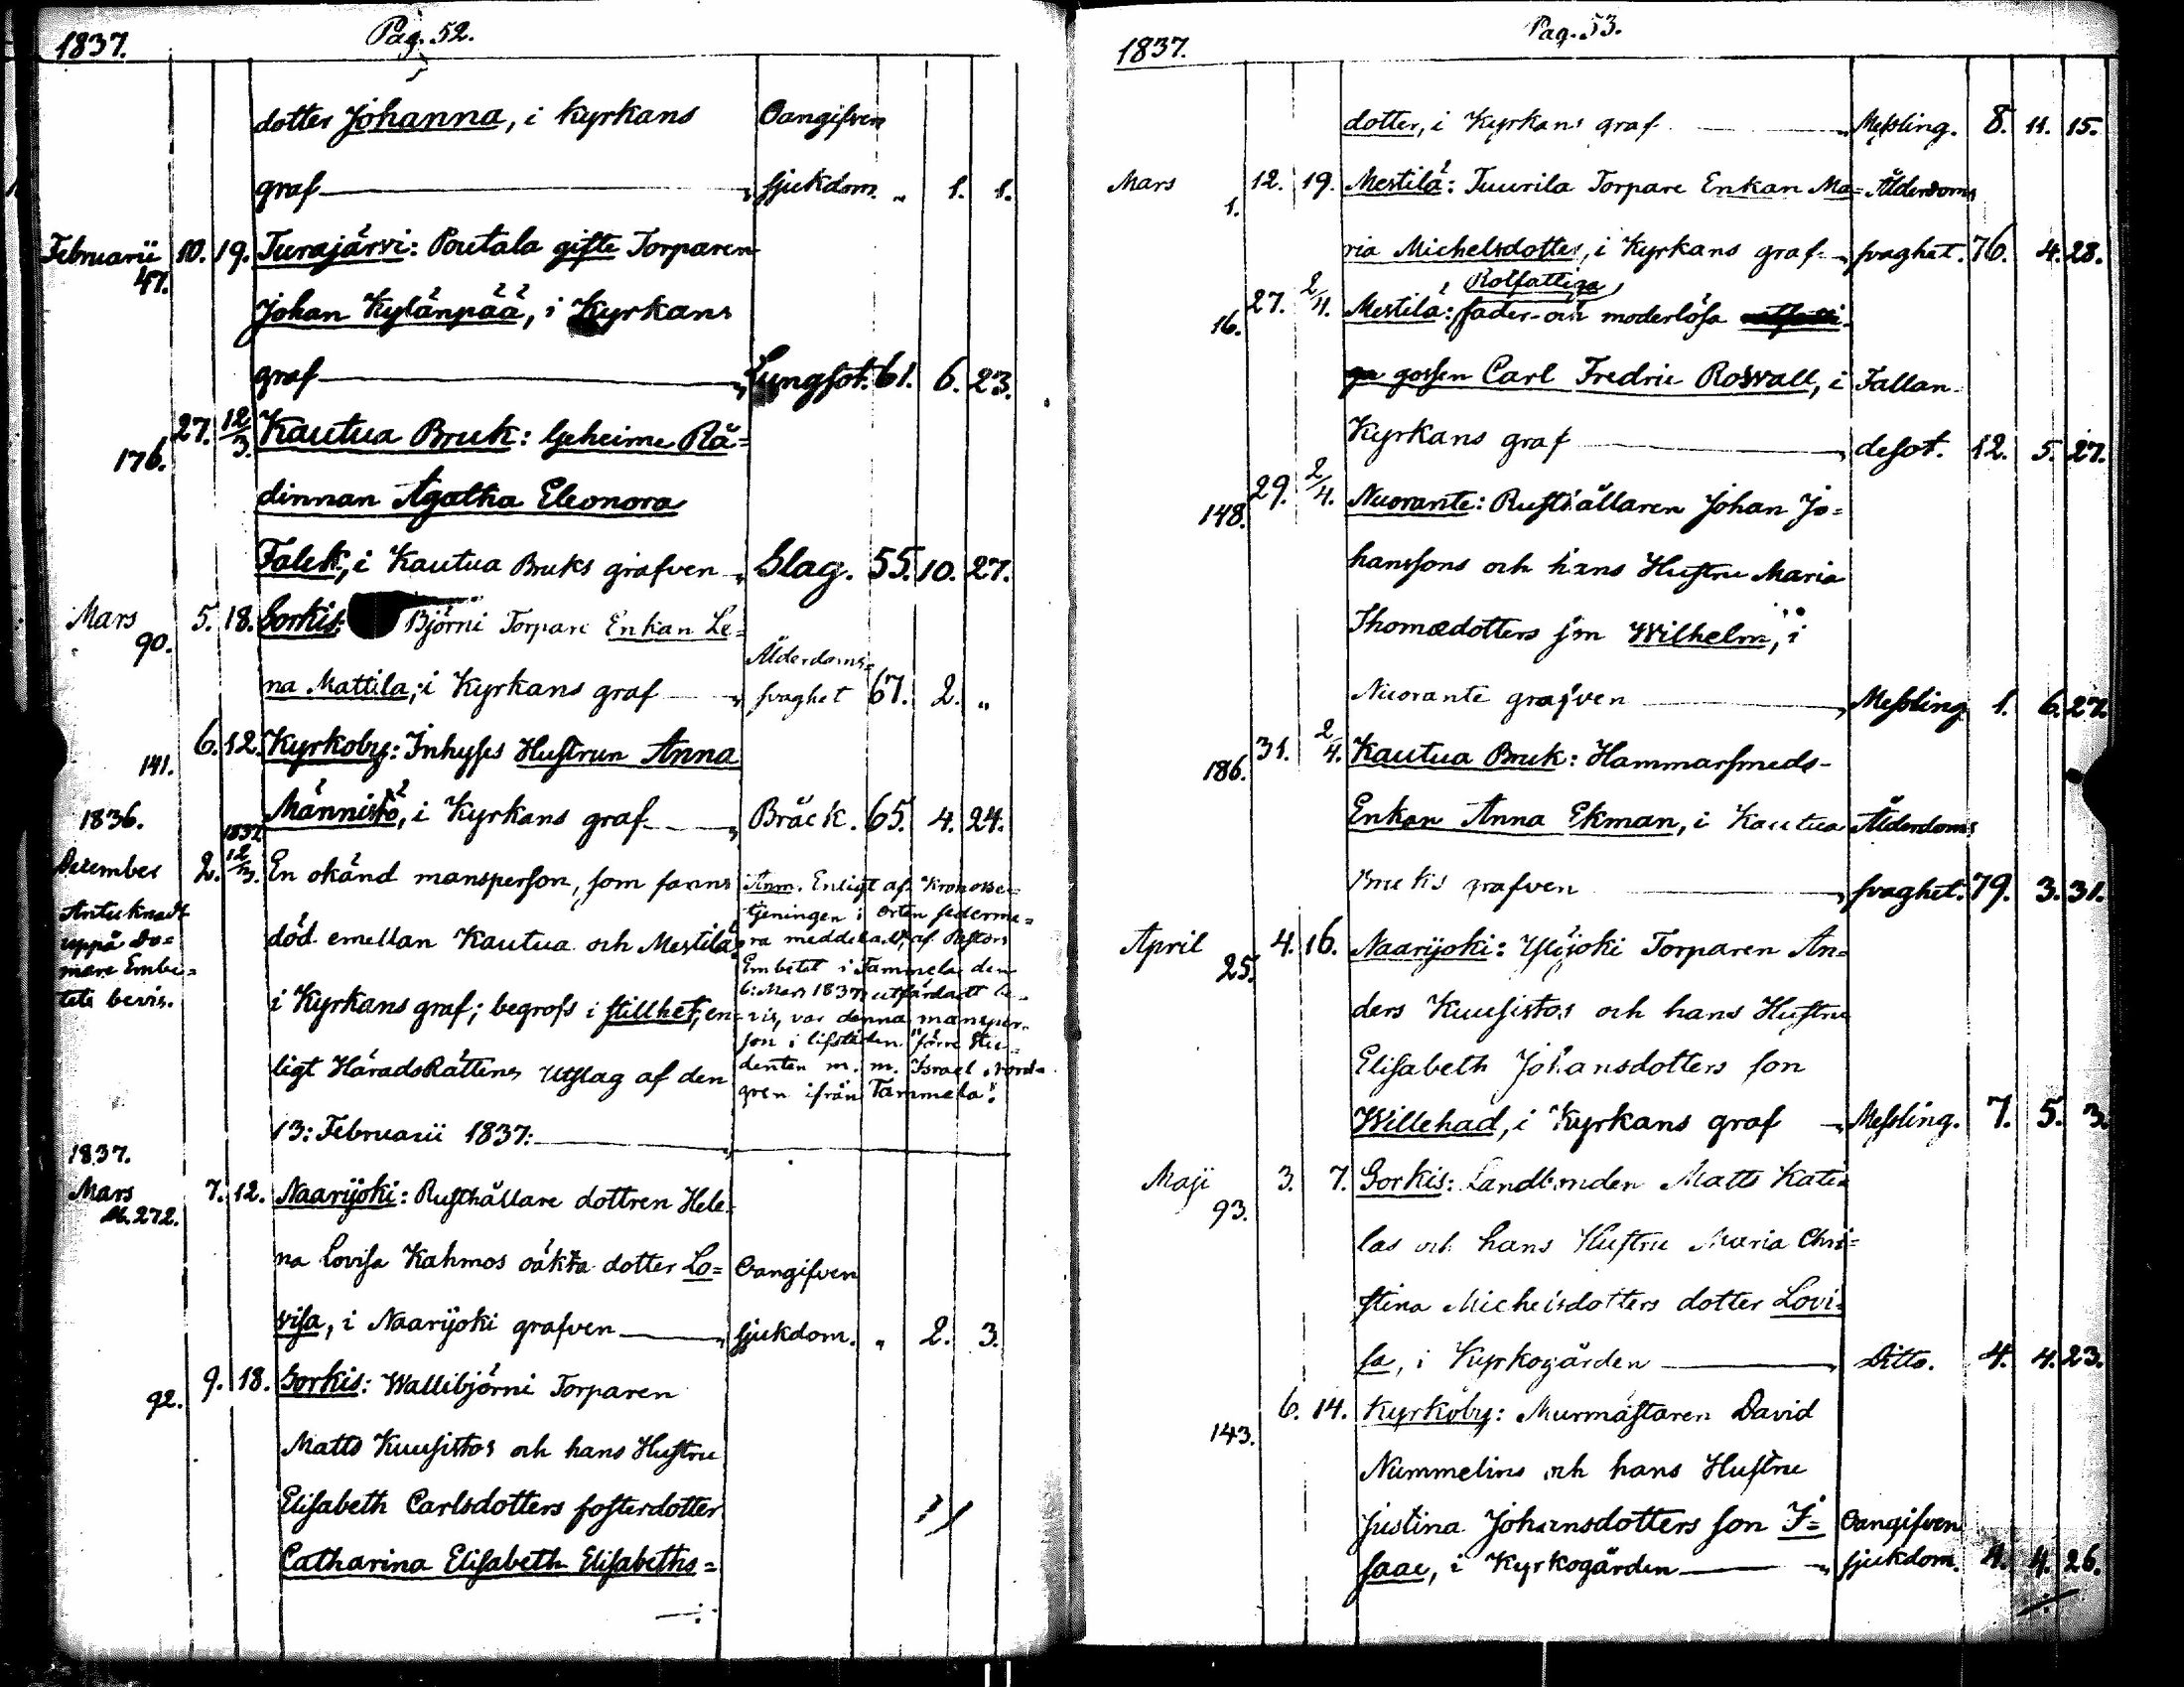 1837.
Pag. 52.
dotter Johanna, i Kyrkans Oangifven
graf sjukdom. " 1. 1.
Februarii 10. 19. Turajärvi: Poutala gifte Torparen
47.
Johan Kylänpää, i Kyrkans
graf Lungsot. 61. 6. 23.
27. 12/3. Kautua Bruk: Geheime Rå=
176.
dinnan Agatha Eleonora
Falck, i Kautua Bruks grafven Slag. 55. 10. 27.
Mars 5. 18. Sorkis: Björni Torpare Enkan Le=
90.
Ålderdoms=
na Mattila, i Kyrkans graf svaghet 67. 2. "
6. 12. Kyrkoby: Inhyses Hustrun Anna
141.
Männistö, i Kyrkans graf Bråck. 65. 4. 24.
1836.
1837
December 2. 12/3. En okänd mansperson, som fanns
Antecknadt
uppå Do=
mare Embe=
tets bevis.
död emellan Kautua och Mestilä
i Kyrkans graf; begrofs i stillhet, en=
ligt HäradsRättens Utslag af den
13: Februarii 1837:
Anm. Enligt af Kronobe=
tjeningen i orten sederme=
ra meddeladt, af Pastors
Embetet i Tammela den
6: Mars 1837 utfärdadt be=
vis, var denna mansper=
son i lifstiden "förre Stu=
denten m. m. Israel Nord=
gren ifrån Tammela".
1837.
Mars 7. 12. Naarijoki: Rusthållare dottren Hele=
M. 272.
na Lovisa Kahmos oäkta dotter Lo= Oangifven
visa, i Naarijoki grafven sjukdom. " 2. 3.
9. 18. Sorkis: Wallibjörni Torparen
92.
Matts Kuusistos och hans Hustru
Elisabeth Carlsdotters fosterdotter
Catharina Elisabeth Elisabeths=
1837.
Pag. 53.
dotter, i Kyrkans graf Messling. 8. 11. 15.
Mars 12. 19. Mestilä: Tuurila Torpare Enkan Ma= Ålderdoms
1.
ria Michelsdotter, i Kyrkans graf svaghet. 76. 4. 28.
Rotfattiga
27. 2/4. Mestilä: fader- och moderlösa
16.
ga gossen Carl Fredric Rosvall, i Fallan=
Kyrkans graf desot. 12. 5. 27.
29. 2/4. Nuorante: Rusthållaren Johan Jo=
148.
hanssons och hans Hustru Maria
Thomædotters son Wilhelm, i
Nuorante grafven Messling 1. 6. 27.
31. 2/4. Kautua Bruk: Hammarsmeds-
186.
Enkan Anna Ekman, i Kautua Ålderdoms
Bruks grafven svaghet. 79. 3. 31.
April 4. 16. Naarijoki: Ylijoki Torparen An=
25.
ders Kuusistos och hans Hustru
Elisabeth Johansdotters son
Willehad, i Kyrkans graf Messling. 7. 5. 3.
Maji 3. 7. Sorkis: Landbonden Matts Kati=
93.
las och hans Hustru Maria Chri=
stina Michelsdotters dotter Lovi=
sa, i Kyrkogården Ditto. 4. 4. 23.
6. 14. Kyrkoby: Murmästaren David
143.
Nummelins och hans Hustru
Justina Johansdotters son I= Oangifven
saac, i Kyrkogården sjukdom. 4. 4. 26.